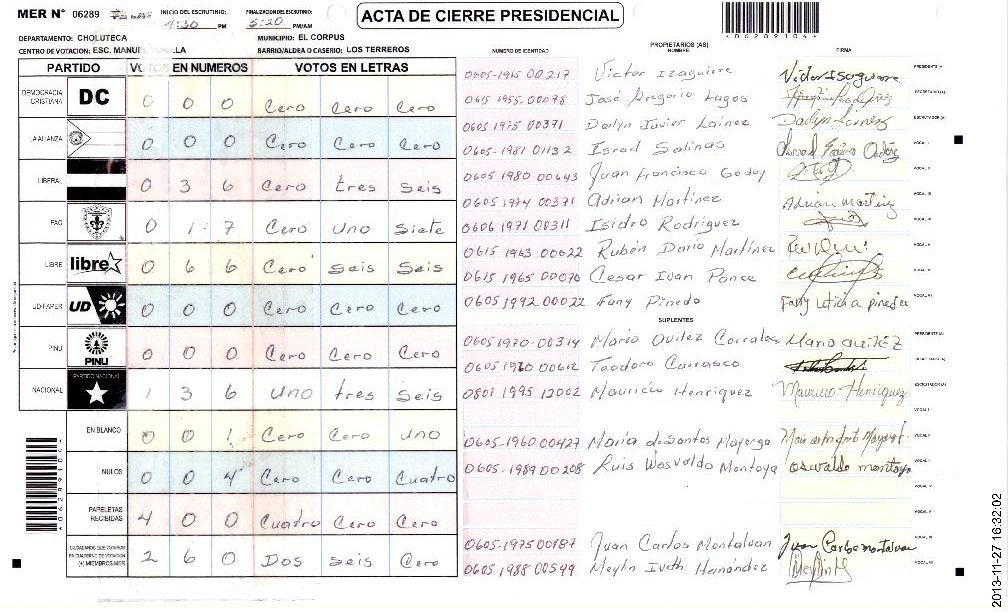 MER N° 06289 INICIO DEL ESCRUTINIO: 4:30 PM FINALIZACION ESCRUTINIO: 5:20 PM/AM ACTA DE CIERRE PRESIDENCIAL 406289104
DEPARTAMENTO: CHOLUTECA MUNICIPIO: EL CORPUS
CENTRO DE VOTACION: ESC. MANUEL BARRIO/ALDEA O CASERIO: LOS TERREROS
NUMERO DE IDENTIDAD PROPIETARIOS (AS) NOMBRE FIRMA
PARTIDO VOTOS EN NUMEROS VOTOS EN LETRAS
DEMOCRACIA CRISTIANA DC 0 0 0 Cero Cero Cero
LA ALIANZA 0 0 0 Cero Cero Cero
LIBERAL 0 3 6 Cero tres Seis
PAC 0 1 7 Cero Uno Siete
LIBRE libre 0 6 6 Cero Seis Seis
UD-FAPER UD 0 0 0 Cero Cero Cero
PINU PINU 0 0 0 Cero Cero Cero
NACIONAL PARTIDO NACIONAL 1 3 6 Uno tres Seis
EN BLANCO 0 0 1 Cero Cero uno
NULOS 0 0 4 Cero Cero Cuatro
PAPELETAS RECIBIDAS 4 0 0 Cuatro Cero Cero
CIUDADANOS QUE VOTARON EN CUADERNO DE VOTACION (+) MIEMBROS MER 2 6 0 Dos Seis Cero
0605-1965 00217 Victor Izaguirre Victor Isaguirre PRESIDENTE (A)
0615 1955-00078 José Gregorio Lagos SECRETARIO (A)
0605 1975 00371 Dailyn Javier Laínez ESCRUTADOR (A)
0605-1981 01132 Israel Salinas VOCAL I
0605 1980 00643 Juan Francisco Godoy VOCAL II
0605 1974 00371 Adrian Martínez Adrian Martinez VOCAL III
0606 1971 00311 Isidro Rodríguez
0615 1963 00622 Rubén Dario Martínez
0615 1965 00070 Cesar Ivan Ponce
0605 1992 00022 Fany Pinedo Fany Leticia pineda
SUPLENTES
0605-1970-00314 Mario Quilez Corrales Mario Quilez PRESIDENTE (A)
0605 1960 00612 Teodoro Carrasco
0801 1995 12002 Mauricio Henriquez Mauricio Henriquez ESCRUTADOR (A)
VOCAL I
0605-1960 00427 María dosantos Mayorga VOCAL II
0605-1989 00208 Ruis Wosvaldo Montoya oswaldo montoya
VOCAL IV
VOCAL V
0605-1975 00187 Juan Carlos Montalvan Juan Carlos montalvan
0605 1988 00599 Meylin Iveth Hernández
406289104
2013-11-27 16:32:02